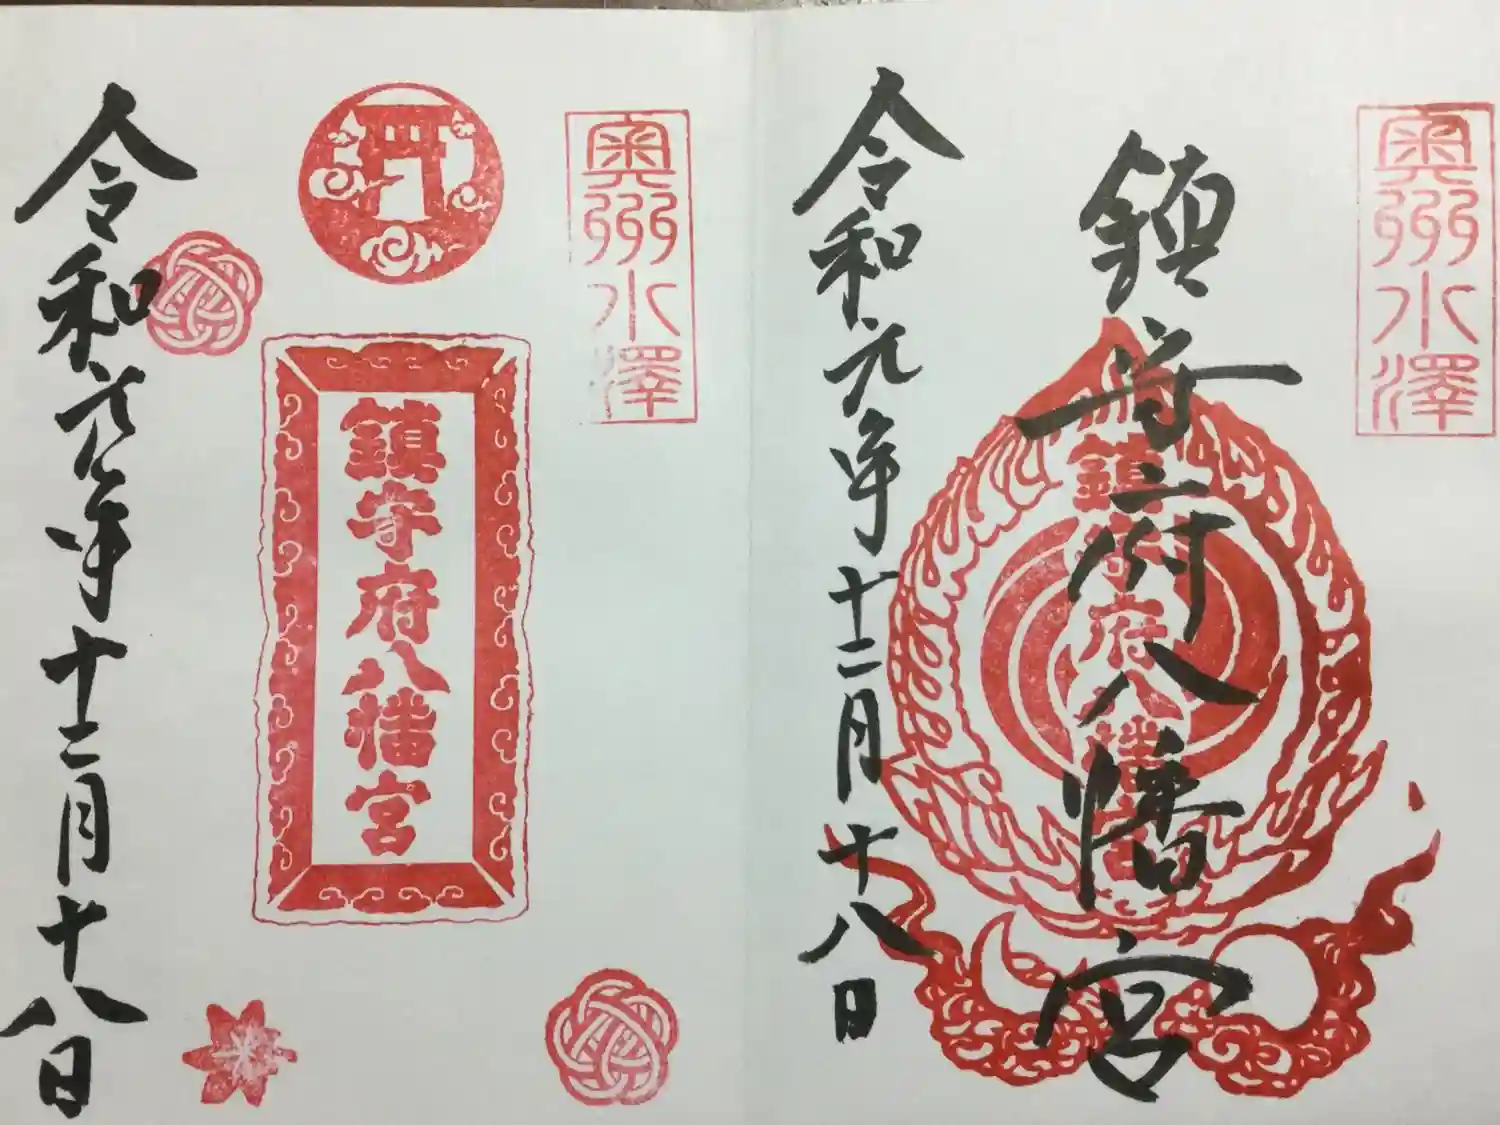 奥州水澤
鎮守府八幡宮
鎮守府八幡宮
令和元年十二月十八日
奥州水澤
鎮守府八幡宮
令和元年十二月十八日